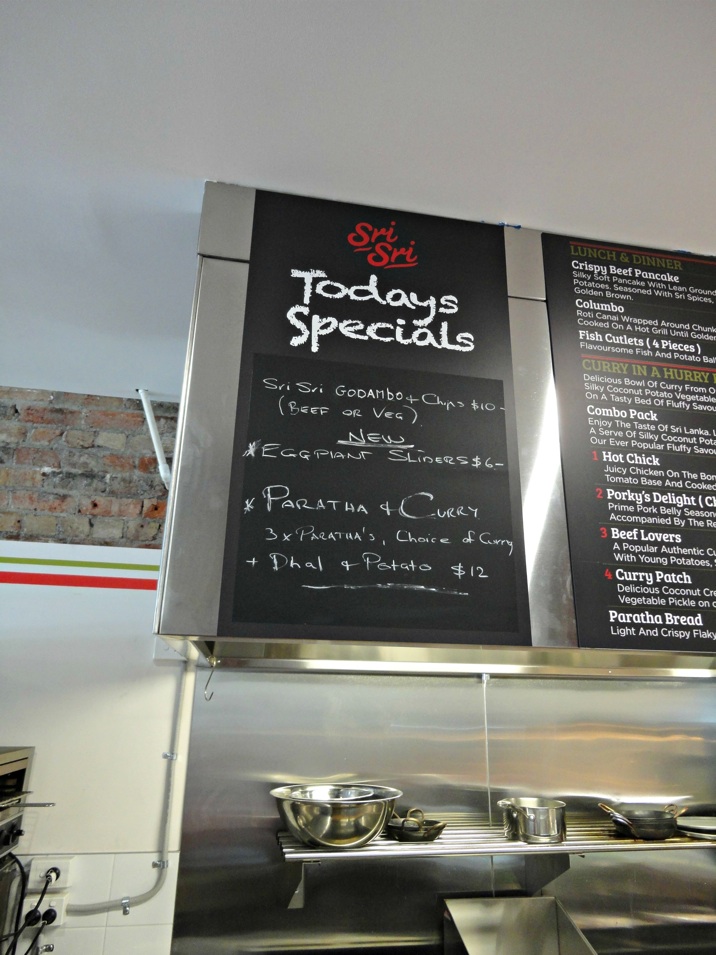 Sri
Sri
Todays
Specials
Sri Sri GODAMBO + Chips $10-
(BEEF OR VEG).
NEW
* EGGPLANT SLIDERS $6-
* PARATHA & CURRY
3 x PARATHA'S, Choice of Curry
+ Dhal & Potato $12
LUNCH & DINNER
Crispy Beef Pancake
Silky Soft Pancake With Lean Ground
Potatoes. Seasoned With Sri Spices,
Golden Brown.
Columbo
Roti Canai Wrapped Around Chunk
Cooked On A Hot Grill Until Golden
Fish Cutlets ( 4 Pieces )
Flavoursome Fish And Potato Ball
CURRY IN A HURRY
Delicious Bowl Of Curry From O
Silky Coconut Potato Vegetable
On A Tasty Bed Of Fluffy Savou
Combo Pack
Enjoy The Taste Of Sri Lanka.
A Serve Of Silky Coconut Pota
Our Ever Popular Fluffy Savou
1 Hot Chick
Juicy Chicken On The Bon
Tomato Base And Cooked
2 Porky's Delight ( Ch
Prime Pork Belly Season
Accompanied By The Re
3 Beef Lovers
A Popular Authentic Cu
With Young Potatoes,
4 Curry Patch
Delicious Coconut Cre
Vegetable Pickle on
Paratha Bread
Light And Crispy Flaky